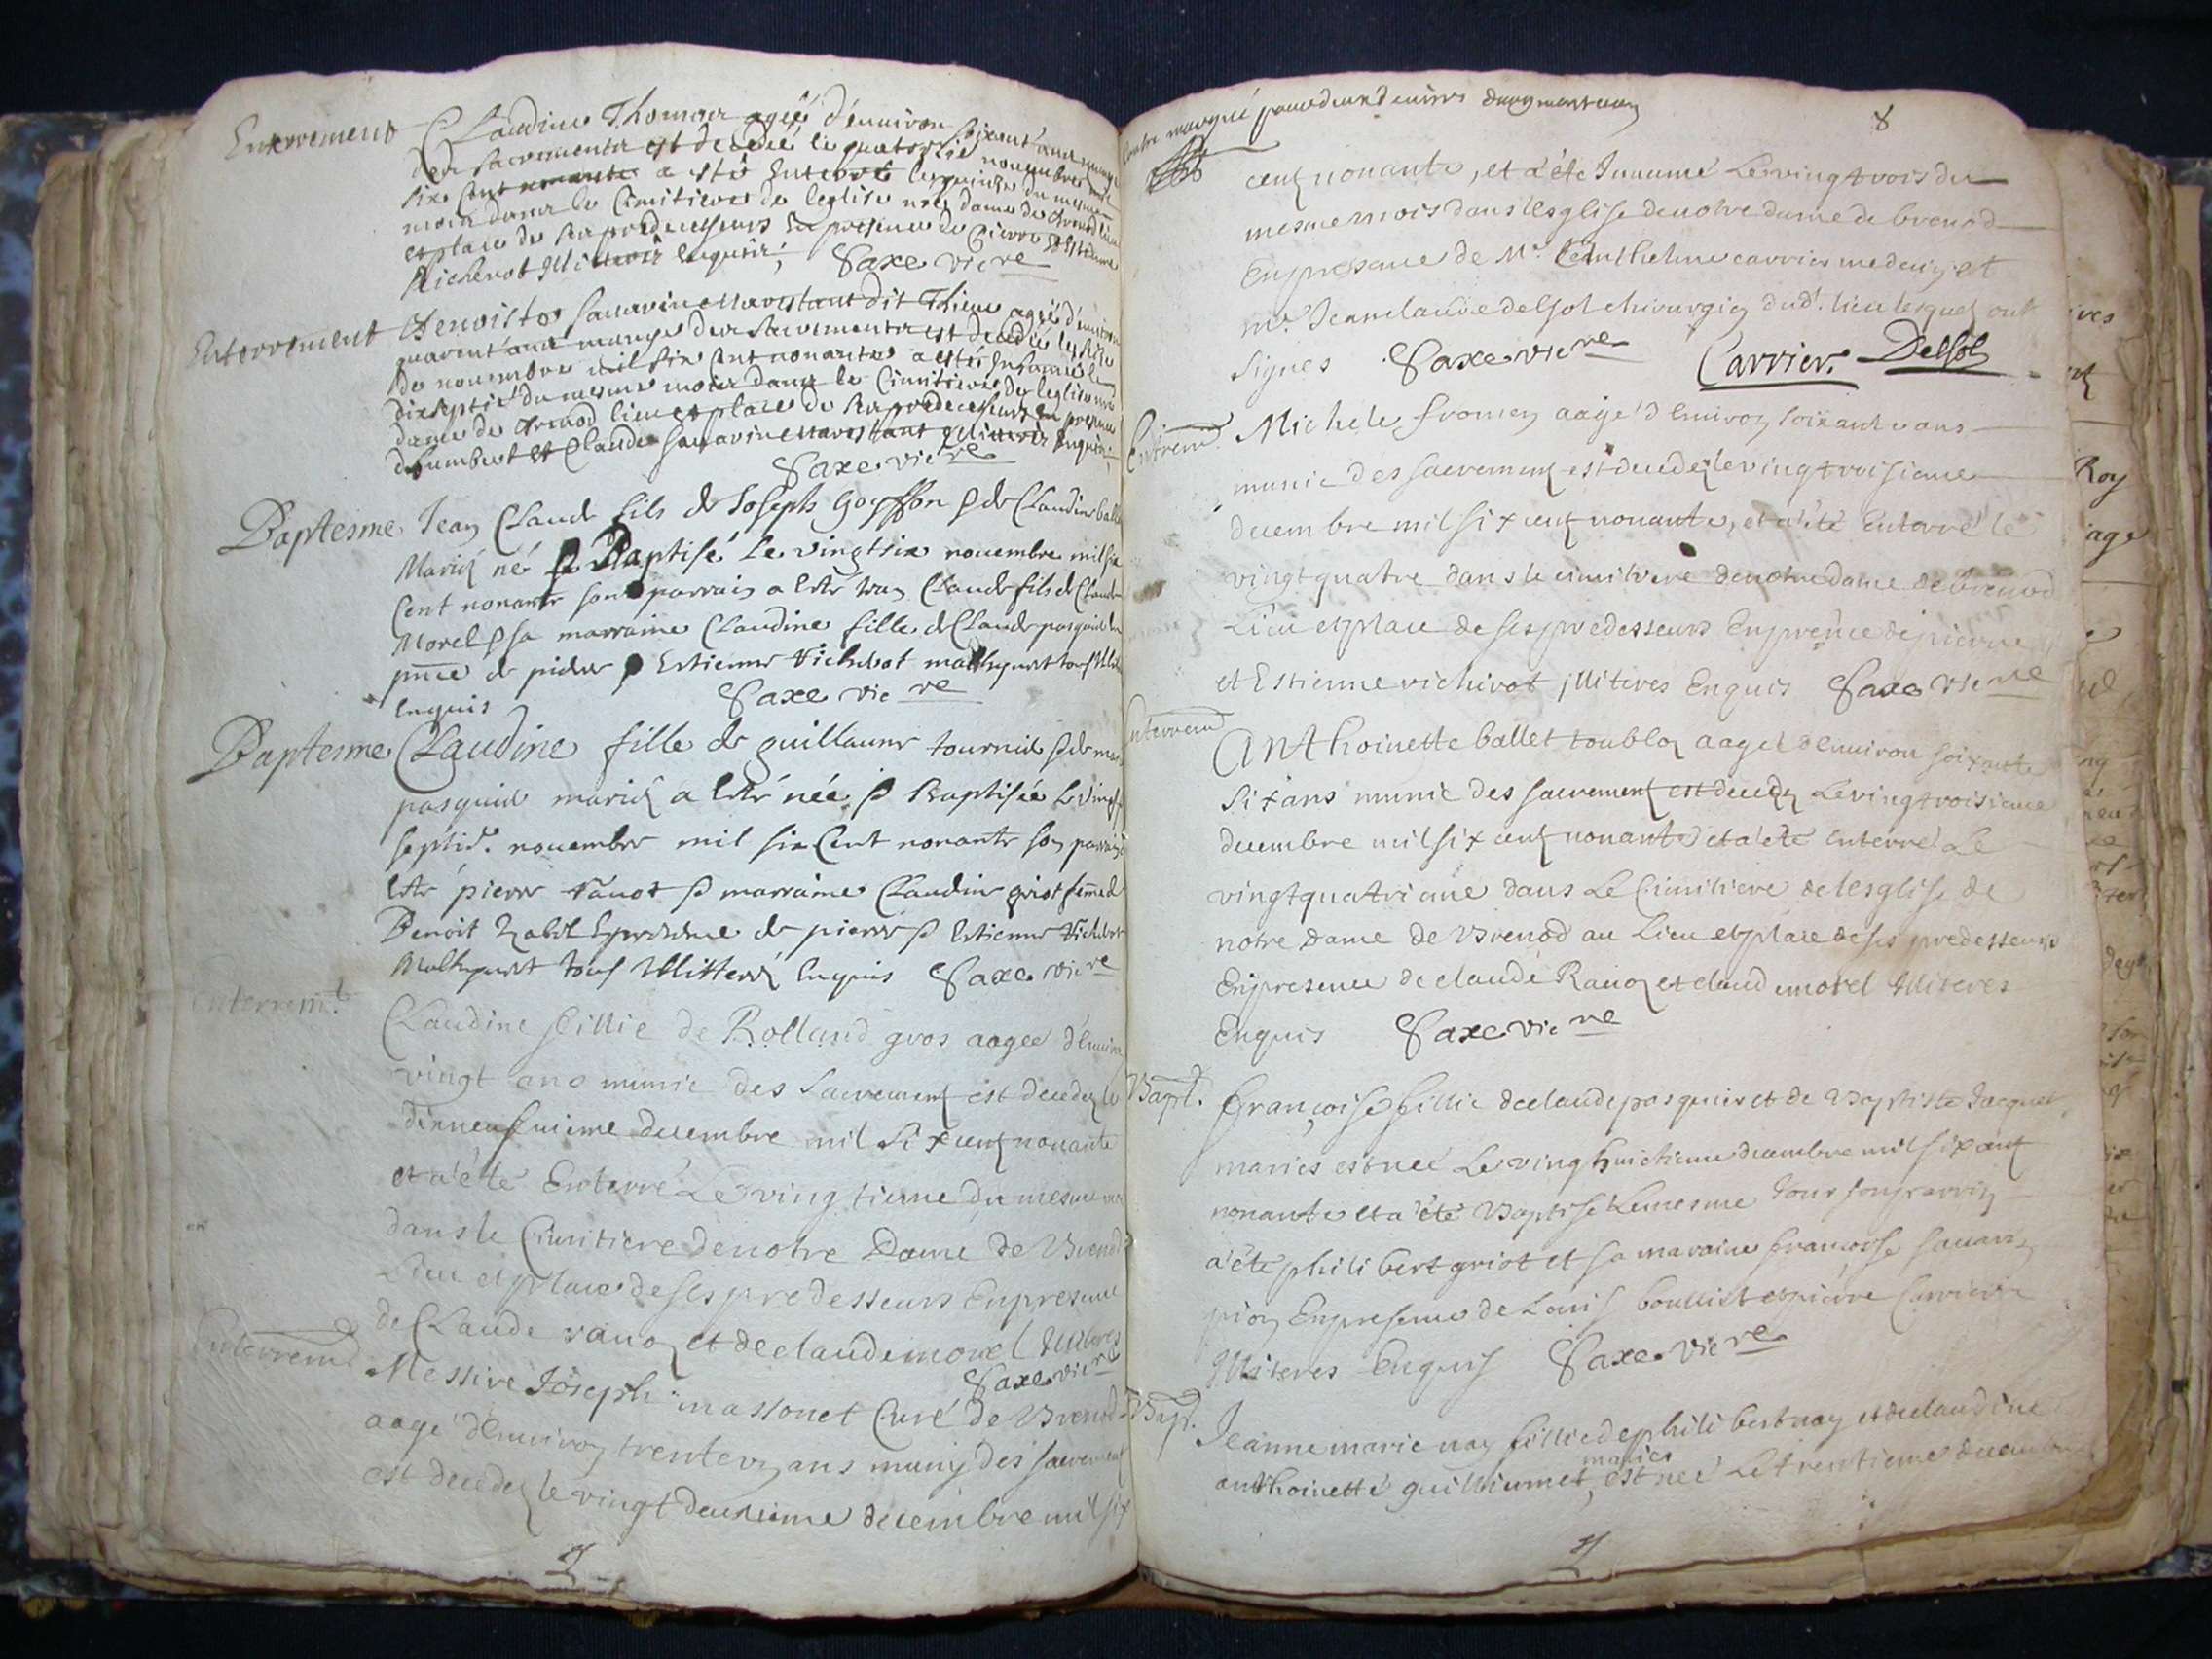 Enterrement Claudine Thomas agée d'enuiron soixant'ans munye
des sacrementz est decedée le quatorzie nouembre mil
six cent nonante a esté Enterré le quinze du mesme
mois dans le Cimitiere de leglise nre dame de Brenod lieu
et place de ses predecesseurs En presence de Pierre et Estienne
Vicherot Illitterés enquis, Saxe vicre
Enterrement Benoiste sauarin dit agée d'enuiron
quarent'ans munye des sacrementz est decedée le seize
de nouembre mil six cent nonante a esté Enterrée le
dixseptié du mesme mois dans le Cimitiere de leglise nre
dame de Brenod lieu et place de ses predecesseurs en presence
d'humbert et Claude sauarin illitterés Enquis
Saxe vicre
Baptesme Jean Claude fils de Joseph Goyffon & de Claudine ballet
Mariés né & Baptisé Le vingtsix nouembre mil six
Cent nonante son parrain a esté Jean Claude fils de Claude
Morel & sa marraine Claudine fille de Claude pasquier en
pnce de pierre & Estienne Vicherot tous illit
enquis Saxe vicre
Baptesme Claudine fille de guillaume tournier & de
pasquier mariés a esté née & Baptisée Le vingt
septie. nouembre mil six Cent nonante son parrain a
esté pierre & marraine Claudine griot femme de
Benoit En presence de pierre & Estienne Vicherot
tous Illitterés Enquis Saxe vicre
Enterremt. Claudine fillie de Rolland gros aagee d'Enuiron
vingt ans munie des Sacrementz est decedez le
dixneufuieme decembre mil Six centz nonante
et a été Enterré Le vingtieme du mesme mois
dans le Cimitiere de notre Dame de Brenod
Lieu et place de ses predesseurs En presence
de Claude rauoz et de claude morel Illiteres
Saxe vicre
Enterremt Messire Joseph massonet Curé de Brenod
aagé d'Enuiron trente ans muny des sacrementz
est decedez le vingt deuxieme decembre mil six
Contre marqué pour deux deniers
8
centz nonante, et a été Inumé Le vingt trois du
mesme mois dans l'esglise de notre dame de brenod
En presance de Mr. Centhelme carrier medecin et
mr. Jean claude delsol chirurgien dudt. lieu lesquel ont
signes Saxe vicre Carrier. Delsol
Entrem Michele fromen aagé d'Enuiron soixante ans
munie des sacrementz est decedez le vingt troisieme
decembre mil six centz nonante, et a été Enterré le
vingt quatre dans le cimitiere de notre dame de brenod
Lieu et place de ses predesseurs En presence de pierre
et Estienne vichirot illiteres Enquis Saxe vicre
Enterrem Anthoinette ballet aagez d'enuiron soixante
Six ans munie des sacrementz est decedez Le vingt troisieme
decembre mil six centz nonante et a été Enterré Le
vingt quatrieme dans Le Cimitiere de lesglise de
notre Dame de Brenod au Lieu et place de ses predesseurs
En presence de claude Rauoz et claude morel illiteres
Enquis Saxe vicre
Bapt. françoise fillie de claude pasquier et de Baptiste Jacquet
maries est neé Le vingt huictieme decembre mil six centz
nonante et a été Baptisé Le mesme Jour son parrin
a été philibert griot et sa maraine françoise sauarin
En presence de Louis boullict et pierre Carrier
Illiteres Enquis Saxe vicre
Bapt. Jeanne marie nay fillie de philibert nay et de claudine
maries
anthoinette guillieumet, est neé Le trentieme decembre